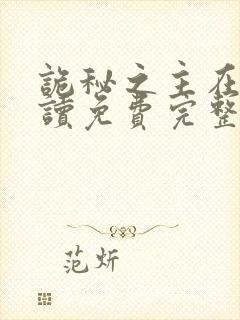 詭秘之主在
讀免費完整
范炘